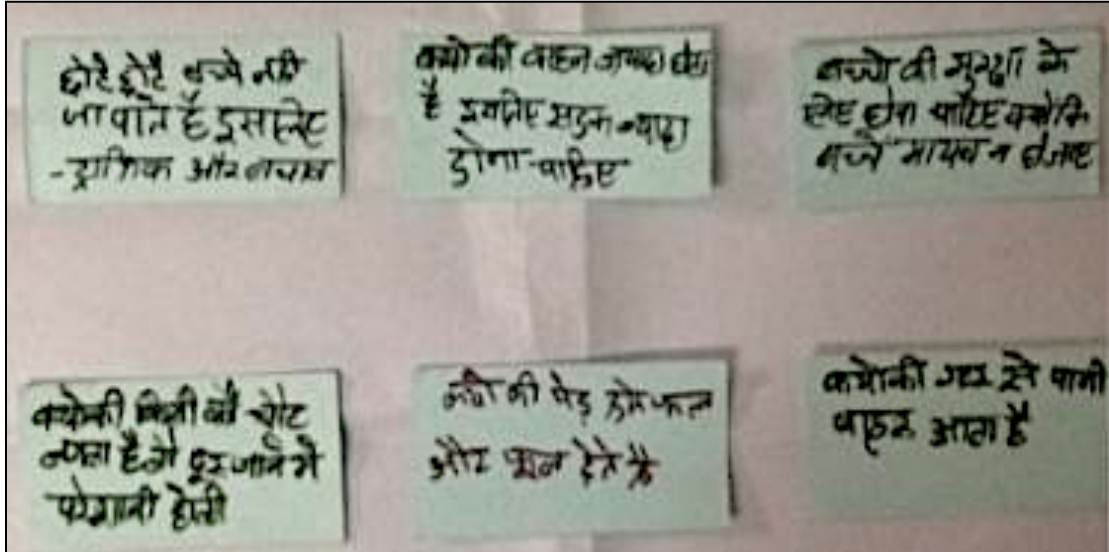 छोटे छोटे बच्चे नही
जा पाते है इसलिए
ट्राफिक और
क्योकी वाहन जादा होता
है इसलिए सड़क ज्यादा
होना चाहिए
बच्चो की सुरक्षा के
लिए होना चाहिए क्योकि
बच्चे गायब न होजाए
क्योकी किसी को चोट
लगता है तो दूर जाने मे
परेशानी होती
क्यो की पेड़ हमे फल
और फूल देते है
क्योकी गटर से पानी
बाहर आता है